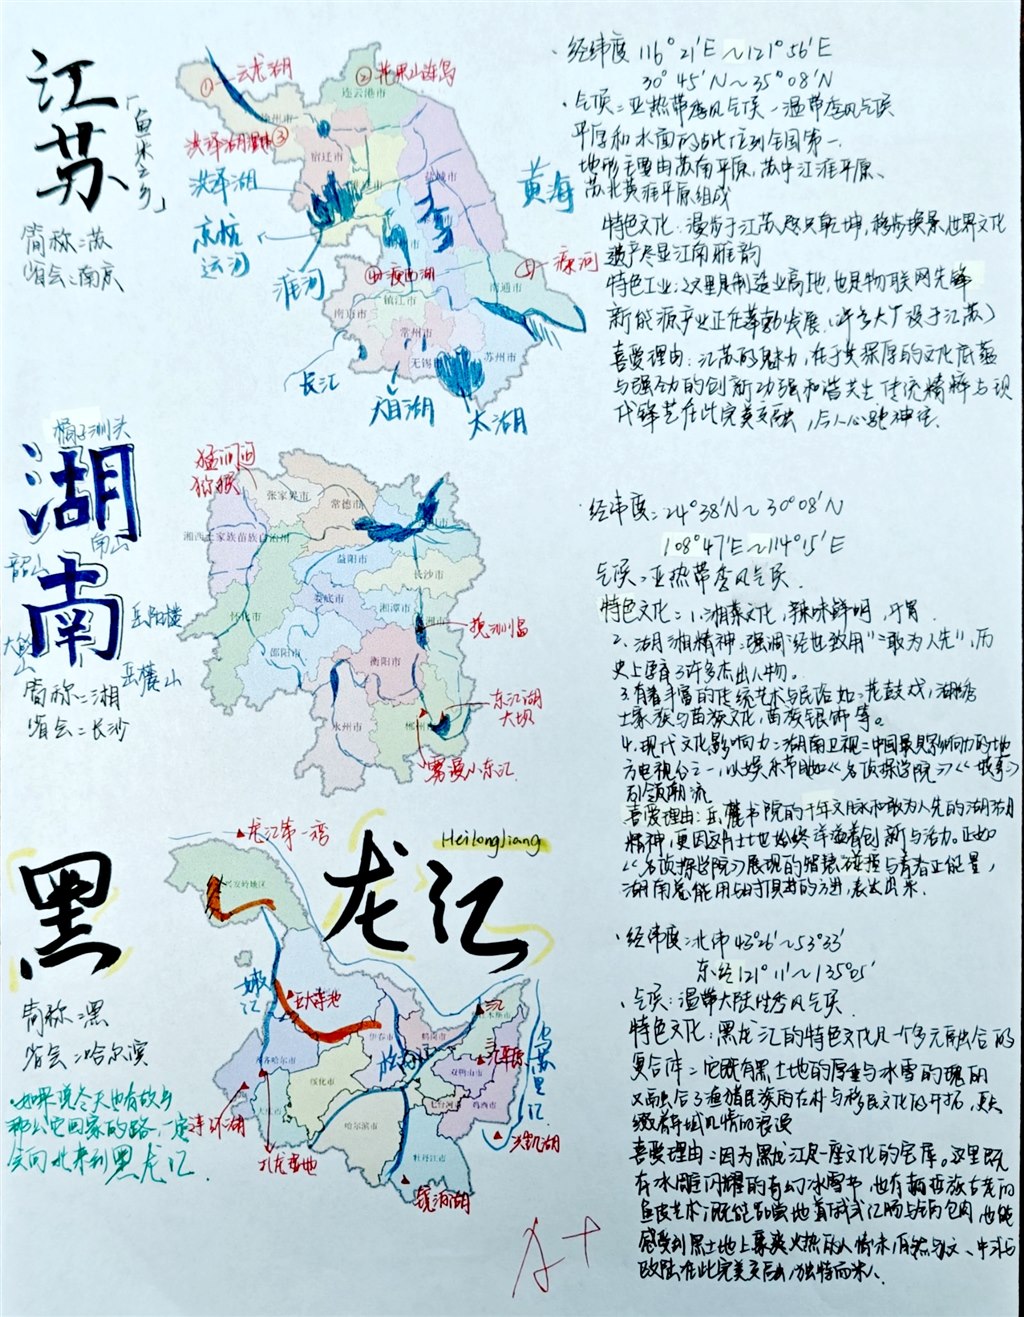 江
苏
「鱼米之乡」
简称:苏
省会:南京
①—云龙湖
②花果山连岛
连云港市
徐州市
洪泽湖湿地③
宿迁市
盐城市
洪泽湖
京杭
运河
淮河
黄海
④瘦西湖
南通市
镇江市
南京市
常州市
无锡市
苏州市
长江
太湖
·经纬度 116°21′E~121°56′E
30°45′N~35°08′N
·气候:亚热带季风气候-温带季风气候
平原和水面的占比位列全国第一.
地形主要由苏南平原,苏中江淮平原、
苏北黄淮平原组成
特色文化:漫步于江苏感只乾坤,移步换景世界文化
遗产尽显江南雅韵
特色工业:这里是制造业高地,也是物联网先锋
新能源产业正在蓬勃发展.(许多大厂设于江苏)
喜爱理由:江苏的魅力,在于其深厚的文化底蕴
与强劲的创新动强和谐共生 传统精粹与现
代锋芒在此完美交融,令人心驰神往.
橘子洲头
湖
南
韶山
岳阳楼
岳麓山
简称:湘
省会:长沙
张家界市
常德市
湘西土家族苗族自治州
益阳市
长沙市
怀化市
娄底市
湘潭市
邵阳市
衡阳市
永州市
郴州市
橘洲岛
东江湖
大坝
雾漫小东江
·经纬度:24°38′N~30°08′N
108°47′E~114°15′E
气候:亚热带季风气候.
特色文化:1.湘菜文化,辣味鲜明,开胃
2.湖湘精神:强调"经世致用""敢为人先",历
史上孕育了许多杰出人物.
3.有着丰富的传统艺术与民俗如:花鼓戏,湖绣
土家族与苗族文化,苗族银饰等。
4.现代文化影响力:湖南卫视:中国最具影响力的地
方电视台之一,以娱乐节目如《名侦探学院》《
引领潮流
喜爱理由:岳麓书院的千年文脉和敢为人先的湖湖
精神,更因这片土地始终洋溢着创新与活力。正如
《名侦探学院》展现的智慧碰撞与青春正能量,
湖南总能用的方式,表达出来.
黑
龙江
Heilongjiang
简称:黑
省会:哈尔滨
·如果说冬天也有故乡
那么它回家的路,一定
会向北来到黑龙江.
龙江第一湾
兴安岭地区
嫩江
五大连池
伊春市
鹤岗市
齐齐哈尔市
绥化市
双鸭山市
七台河市
鸡西市
大庆市
哈尔滨市
牡丹江市
松花江
三江
三江平原
乌苏里江
兴凯湖
连环湖
扎龙湿地
镜泊湖
·经纬度:北纬43°26′~53°33′
东经121°11′~135°05′
·气候:温带大陆性季风气候.
特色文化:黑龙江的特色文化是个多元融合的
复合体:它既有黑土地的厚重与冰雪的瑰丽
又融合了渔猎民族的古朴与移民文化的开拓,
喜爱理由:因为黑龙江是一座文化的宝库。这里既
有冰雕闪耀的奇幻冰雪节,也有赫哲族古老的
鱼皮艺术.既能品尝地道俄式红肠与锅包肉,也能
感受到黑土地上豪爽火热的人情味.自然与人文、中华与
欧陆在此完美交融,独特而迷人.
A+